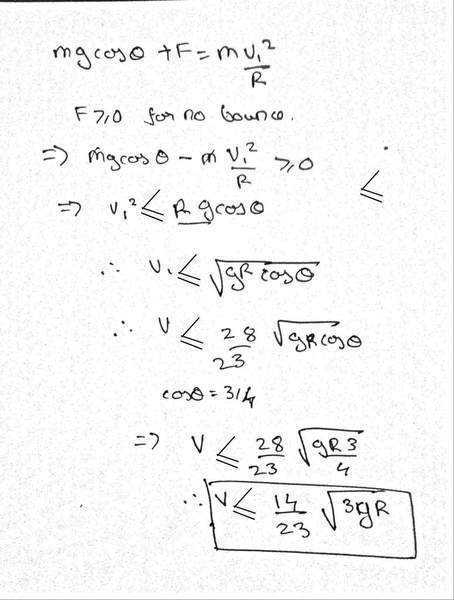 mgcosθ + F = m v₁²/R
F ≥ 0 for no bounce.
⇒ mgcosθ - m v₁²/R ≥ 0
≤
⇒ v₁² ≤ R gcosθ
∴ v₁ ≤ √(gR cosθ)
∴ v ≤ 28/23 √(gRcosθ)
cosθ = 3/4
⇒ v ≤ 28/23 √(gR3/4)
∴ v ≤ 14/23 √(3gR)